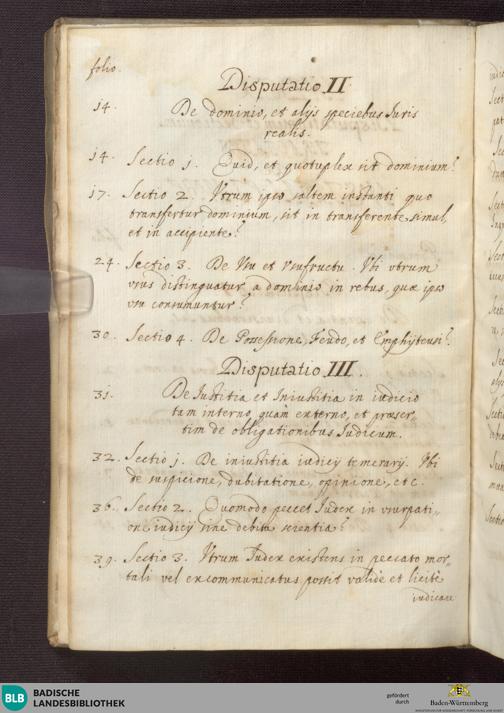 folio.
Disputatio II.
14. De dominio, et alijs speciebus Iuris
realis.
14. Sectio 1. Quid, et quotuplex sit dominium?
17. Sectio 2. Vtrum ipso saltem instanti quo
transfertur dominium, sit in transferente simul,
et in accipiente?
24. Sectio 3. De Vsu et Vsufructu. Vbi utrum
vsus distinguatur a dominio in rebus, quæ ipso
vsu consumuntur?
30. Sectio 4. De Possessione, Feudo, et Emphyteusi?
Disputatio III.
31. De Iustitia et Iniustitia in iudicio
tam interno, quam externo, et præser
tim de obligationibus Iudicum.
32. Sectio j. De iniustitia iudicij temerarij. Vbi
de suspicione, dubitatione, opinione, etc.
36. Sectio 2. Quomodo peccet Iudex in vsurpati-
one iudicij sine debita scientia?
39. Sectio 3. Vtrum Iudex existens in peccato mor-
tali vel excommunicatus possit valide et licite
iudicare
BLB
BADISCHE
LANDESBIBLIOTHEK
gefördert
durch
Baden-Württemberg